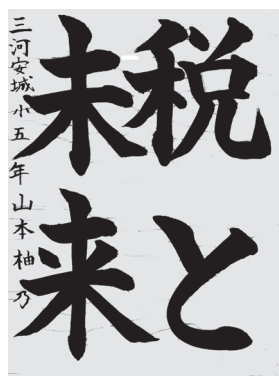 税と
未来
三河安城小五年山本柚乃